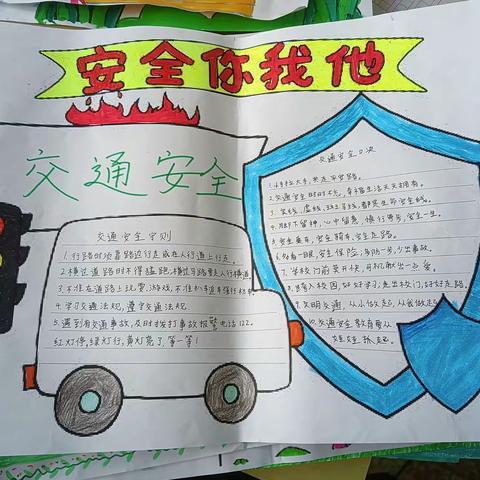 安全你我他
交通安全
交通安全守则
1.行路时须靠路边行走或在人行道上行走。
2.横过道路时不得猛跑,横过马路要走人行横道。
3.不准在道路上玩耍、游戏,不准扒车追车强行拦车。
4.学习交通法规,遵守交通法规。
5.遇到有交通事故,及时拨打事故报警电话122。
红灯停,绿灯行,黄灯亮了,等一等!
交通安全口决
1.小手拉大手,共走平安路。
2.交通安全时时不忘,幸福生活天天拥有。
3.实线,虚线,斑马线,都是生命安全线。
4.脚下留神,心中留意,慎行得步,安全一生。
5.安全乘车,安全骑车,安全走路。
6.多看一眼,安全保险,多防一步,少出事故。
7.学校门前要开快,司机献出一点爱。
8.进有入校园,好好学习,走出校门,好好走路。
9.文明交通,从小做起,从我做起
10.交通安全教育要从
娃娃抓起。